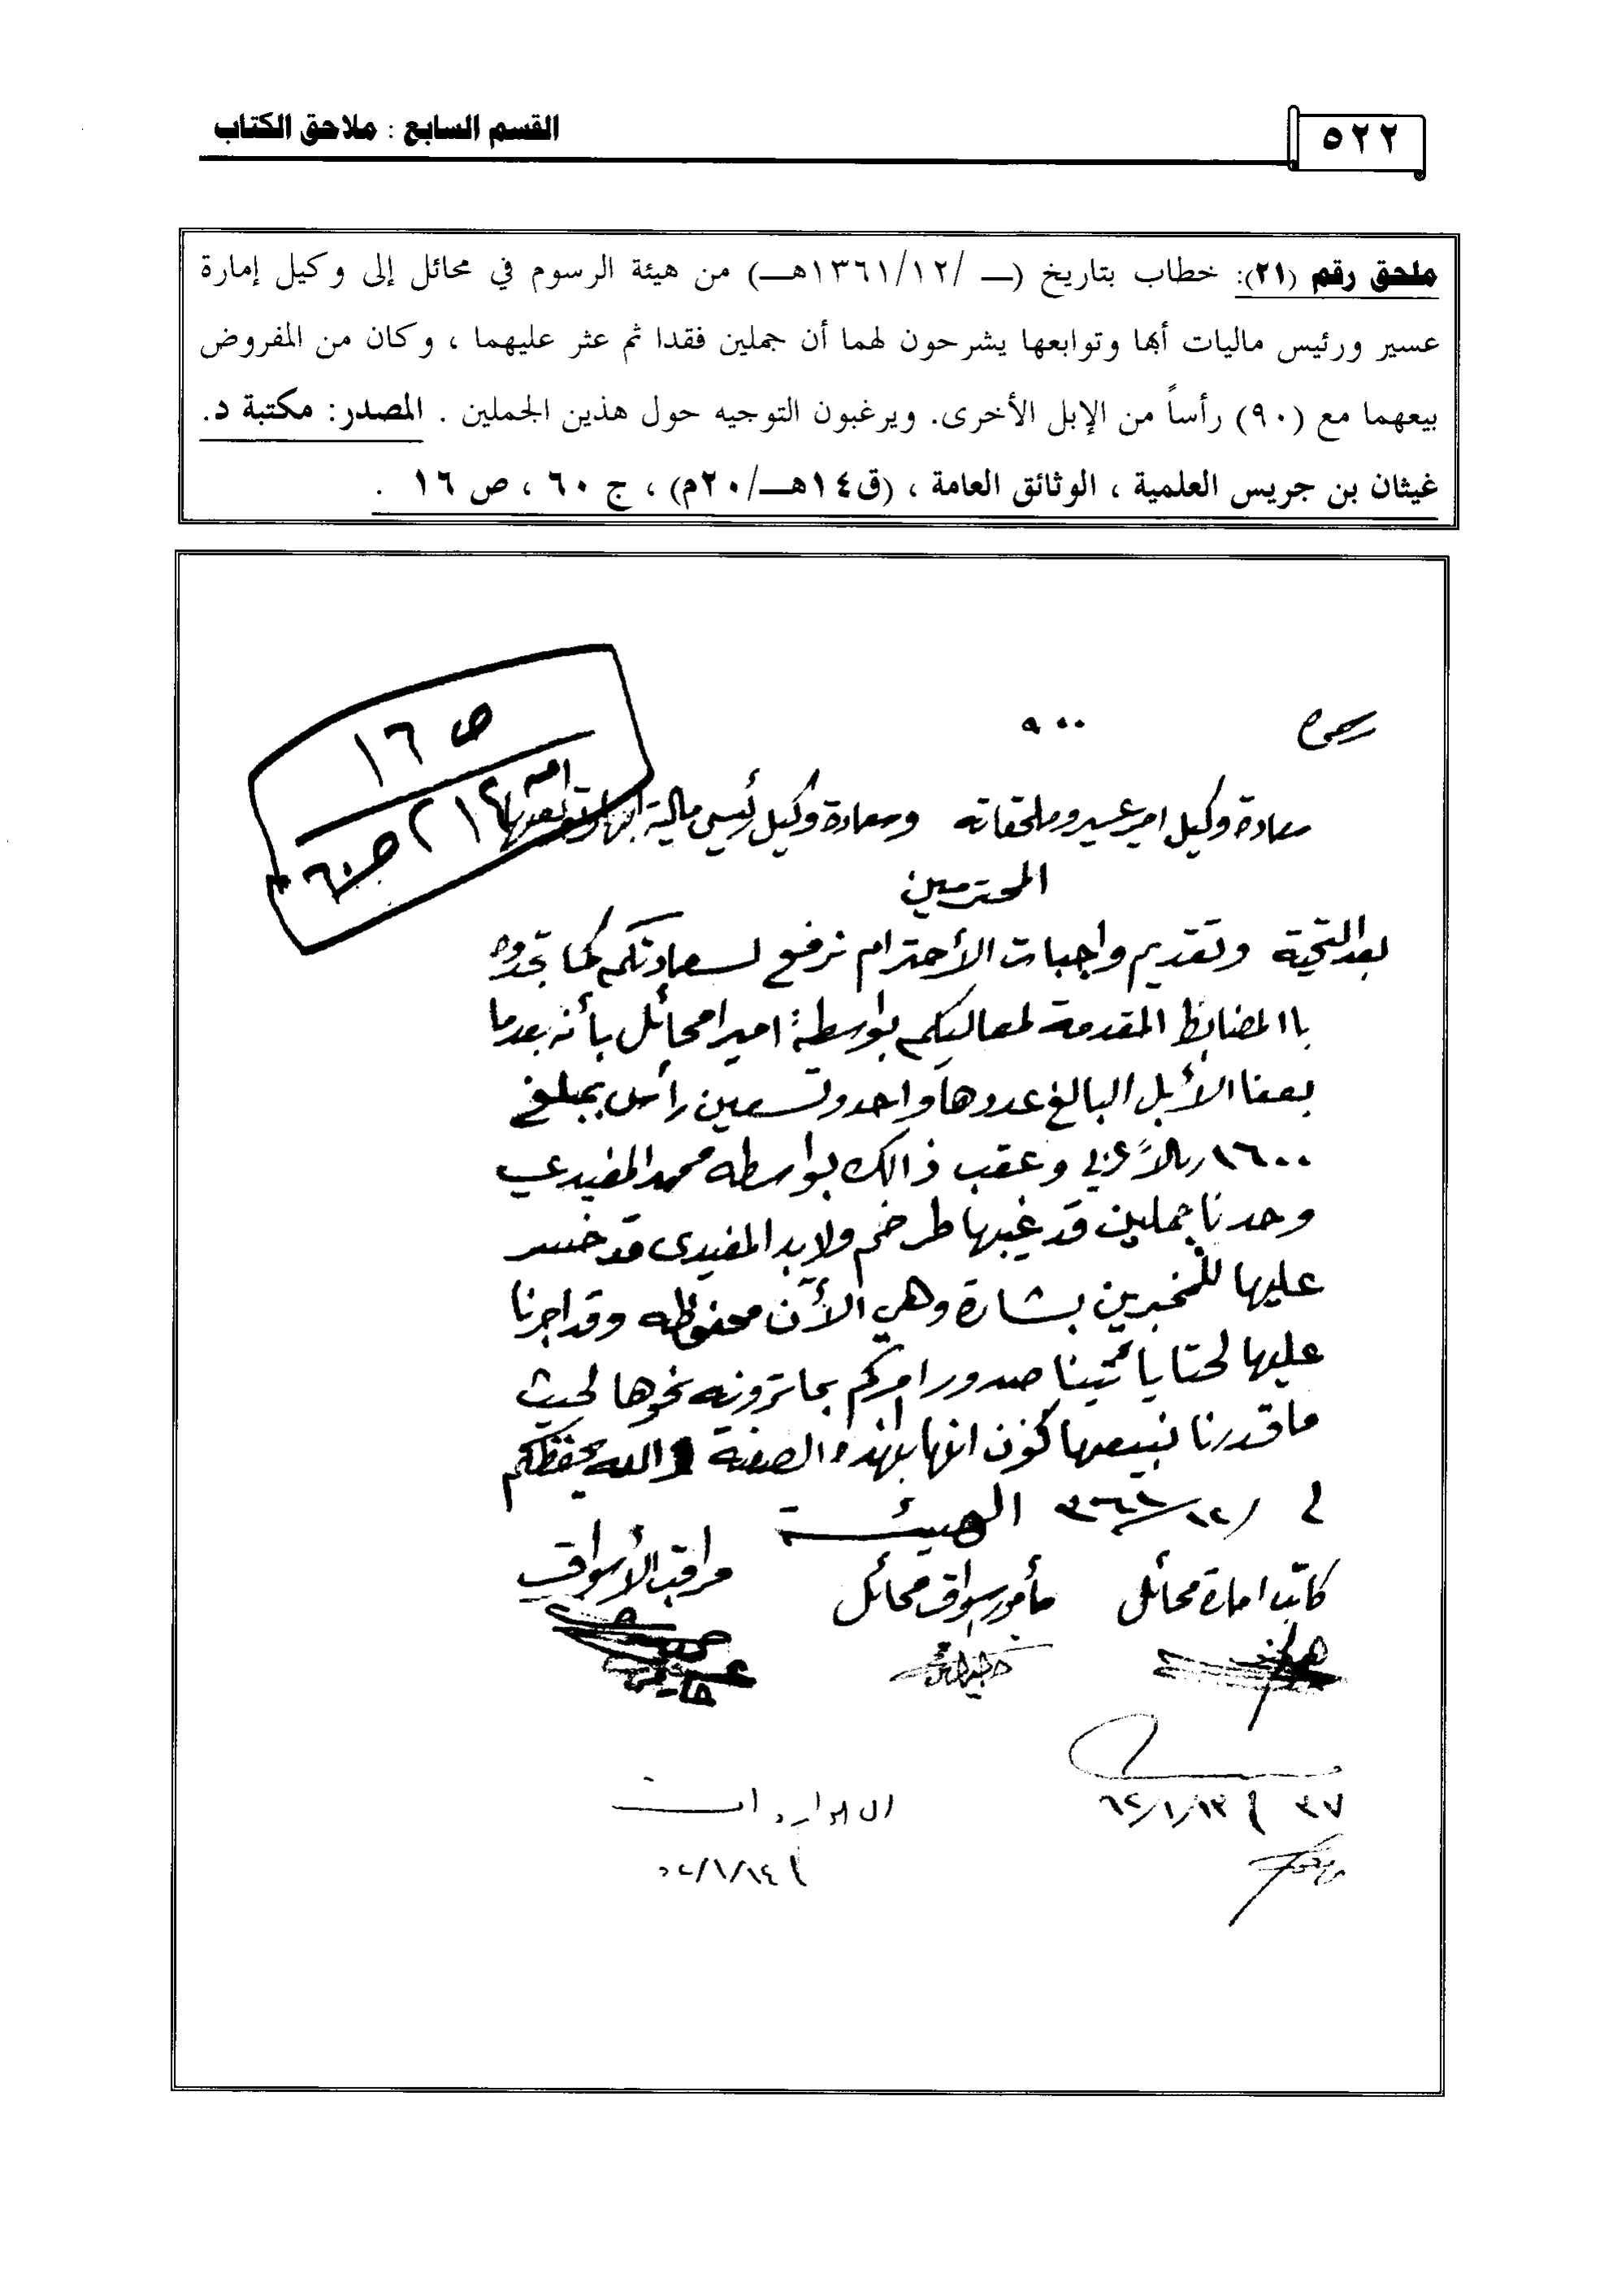 القسم السابع : ملاحق الكتاب
٥٢٢
ملحق رقم (٢١): خطاب بتاريخ (ــ /١٣٦١/١٢هــ) من هيئة الرسوم في محائل إلى وكيل إمارة
عسير ورئيس ماليات أبها وتوابعها يشرحون لهما أن جملين فقدا ثم عثر عليهما ، وكان من المفروض
بيعهما مع (٩٠) رأساً من الإبل الأخرى. ويرغبون التوجيه حول هذين الجملين . المصدر: مكتبة د.
غيثان بن جريس العلمية ، الوثائق العامة ، (ق١٤هــ/٢٠م) ، ج ٦٠ ، ص ١٦ .
ص ١٦
٩٠٠
سعادة وكيل امير عسير وملحقاته وسعادة وكيل رئيس مالية ابها وتوابعها
المحترمين
بعد التحية وتقديم واجبات الأحترام نرفع لسعادتكم كما تجدوه
باالمضابط المقدمة لمعاليكم بواسطة امير امحائل بأنه بعدما
بعنا الأبل البالغ عددها واحد وتسعين رأس بمبلغ
١٦٠٠ ريالاً عربي وعقب ذالك بواسطه محمد المفيدي
وجدنا جملين قد غيبها طرخم ولابد المفيدى قد خسر
عليها للمخبرين بشارة وهي الأن محفوظه وقد اجرنا
عليها لحتا يأتينا صدور امركم بما ترونه نحوها لحيث
ماقدرنا نبيعها كون انها بهذه الصفة والله يحفظكم
في /١٢/٣٦١ الهيئة
كاتب امارة محائل مأمور سواق محائل مراقب الأسواق
٣٧ في ٦٢/١/١٣
الايرادات